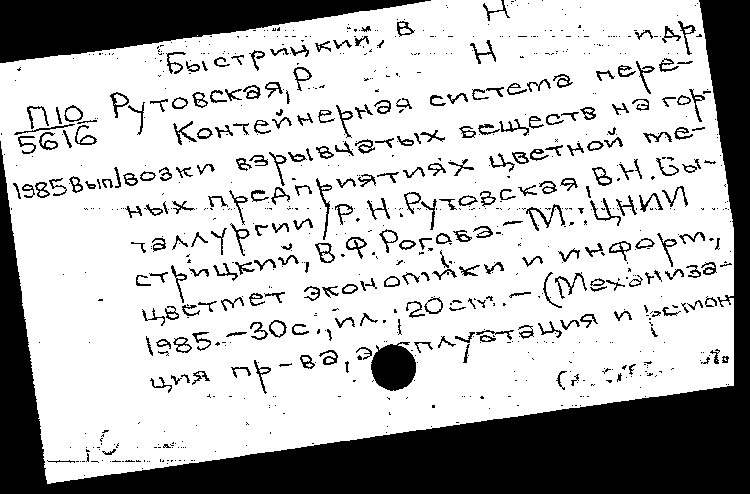 Быстрицкий, В Н
Рутовская, Р. Н и др.
П10
5616
Контейнерная система пере-
1985 Вып.1 возки взрывчатых веществ на гор-
ных предприятиях цветной ме-
таллургии / Р.Н.Рутовская, В.Н.Бы-
стрицкий, В.Ф.Рогова. – М.: ЦНИИ
цветмет экономики и информ.,
1985. – 30с., ил.; 20см. – (Механиза-
ция пр-ва, эксплуатация и ремон